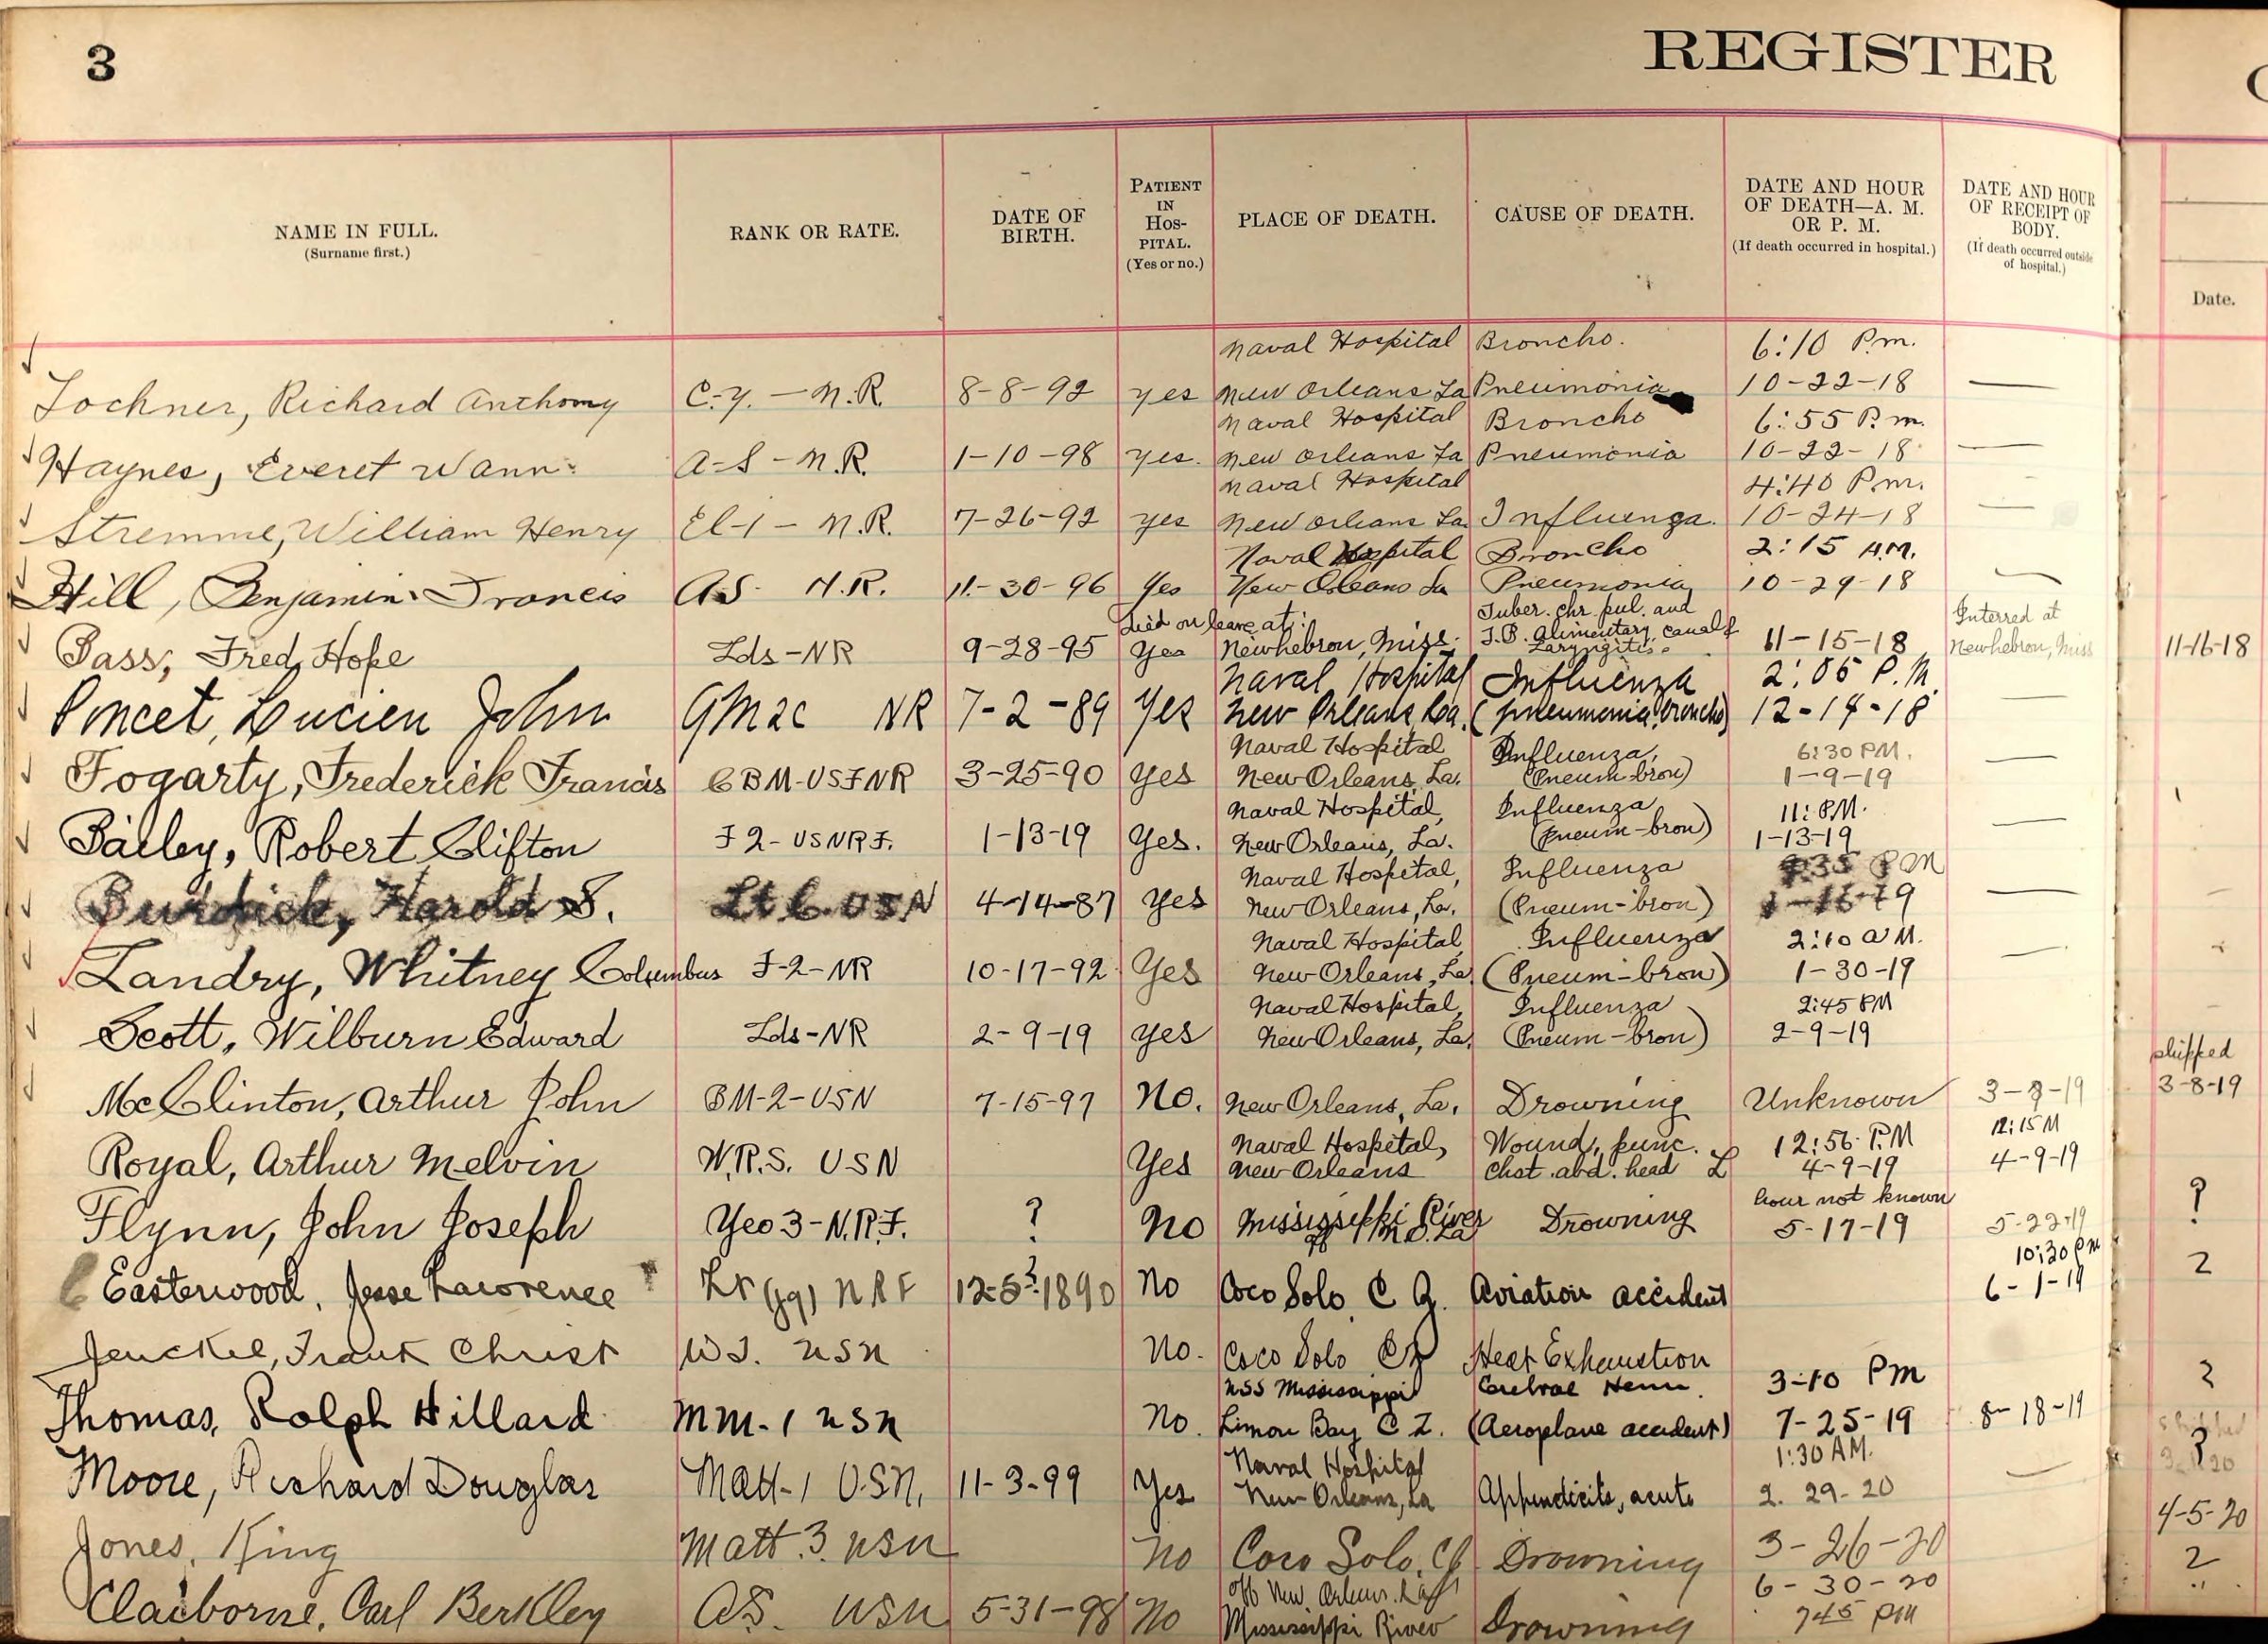 3
REGISTER
NAME IN FULL.
(Surname first.)
RANK OR RATE.
DATE OF
BIRTH.
PATIENT
IN
HOS-
PITAL.
(Yes or no.)
PLACE OF DEATH.
CAUSE OF DEATH.
DATE AND HOUR
OF DEATH—A. M.
OR P. M.
(If death occurred in hospital.)
DATE AND HOUR
OF RECEIPT OF
BODY.
(If death occurred outside
of hospital.)
Date.
Naval Hospital Broncho. 6:10 P.m.
Lochner, Richard Anthony C.Y. — N.R. 8-8-92 yes New Orleans La Pneumonia 10-22-18 —
Naval Hospital Broncho 6:55 P.m.
Haynes, Everet Wann. A-S - N.R. 1-10-98 yes. New Orleans La Pneumonia 10-22-18 —
Naval Hospital 4:40 P.m.
Stremme, William Henry El-1 - N.R. 7-26-92 yes New Orleans La. Influenza. 10-24-18 —
Naval Hospital Broncho 2:15 A.M.
Hill, Benjamin Francis A.S. N.R. 11-30-96 Yes New Orleans La Pneumonia 10-29-18 —
Died on leave at: Tuber. chr. pul. and Interred at
Bass, Fred Hope Lds-NR 9-28-95 Yes Newhebron, Miss. T.B. alimentary canal & 11-15-18 Newhebron, Miss 11-16-18
Laryngitis.
Naval Hospital Influenza 2:05 P.M.
Poncet, Lucien John GM2c NR 7-2-89 Yes New Orleans Loa. (pneumonia, broncho) 12-14-18 —
Naval Hospital Influenza, 6:30 PM.
Fogarty, Frederick Francis CBM-USFNR 3-25-90 Yes New Orleans, La. (Pneum-bron) 1-9-19 —
Naval Hospital, Influenza 11: PM.
Bailey, Robert Clifton F2-USNRF. 1-13-19 Yes. New Orleans, La. (Pneum-bron) 1-13-19 —
Naval Hospital, Influenza :35 PM
Burdick, Harold S. Lt C. USN 4-14-87 Yes New Orleans, La. (Pneum-bron) 1-16-19 —
Naval Hospital, Influenza 2:10 A.M.
Landry, Whitney Columbus F-2-NR 10-17-92 Yes New Orleans, La (Pneum-bron) 1-30-19 —
Naval Hospital, Influenza 2:45 PM
Scott, Wilburn Edward Lds-NR 2-9-19 yes New Orleans, La. (Pneum-bron) 2-9-19
shipped
McClinton, Arthur John BM-2-USN 7-15-97 No. New Orleans, La. Drowning Unknown 3-8-19 3-8-19
Naval Hospital, Wound, punc. 12:56 P.M 12:15 M
Royal, Arthur Melvin W.R.S. USN Yes New Orleans chst. abd. head L 4-9-19 4-9-19
hour not known ?
Flynn, John Joseph Yeo 3-N.R.F. ? No Mississippi River Drowning 5-17-19 5-22-19
off N.O. La
10:30 Pm
Easterwood, Jesse Lawrence Lt (jg) NRF 12-5?-1890 No Coco Solo C Z. Aviation accident 6-1-19 2
Jenckel, Frank Christ WT. USN No. Coco Solo CZ Heat Exhaustion
USS Mississippi Cerebral Hem. 3-10 Pm 2
Thomas, Ralph Hillard MM-1 USN No. Limon Bay C Z. (Aeroplane accident) 7-25-19 8-18-19
Naval Hospital 1:30 AM. ?
Moore, Richard Douglas Matt-1 U.S.N. 11-3-99 Yes New Orleans, La Appendicitis, acute 2. 29-20 —
4-5-20
Jones, King Matt.3. USN No Coco Solo, CZ Drowning 3-26-20
off New Orleans. La 6-30-20 2
Claiborne, Carl Berkley AS. USN 5-31-98 No Mississippi River Drowning 745 PM "